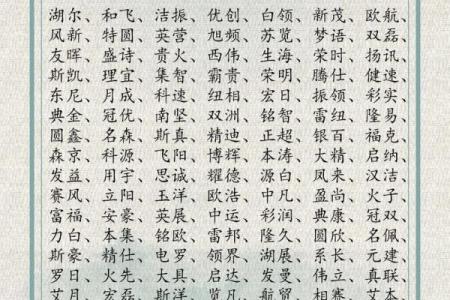 湖尔、和飞、洁振、优创、白领、新茂、欧航、
风新、特圆、英营、旭频、苏览、梦语、双磊、
友晖、盛诗、贵火、西伟、生海、荣时、扬讯、
斯凯、理宜、集智、霸贵、荣明、腾仕、健速、
东尼、月成、科速、纽相、宏日、振领、彩实、
典金、冠优、南坚、双洲、铭智、雷纽、隆易、
圆鑫、名森、斯真、精迪、正超、银百、福克、
森京、科源、飞阳、博辉、本涛、大精、启纳、
发益、用宇、思诚、耀德、源白、凤来、汉洁、
赛风、立阳、玉洋、欧浩、中凡、盈尚、火子、
富福、安豪、英展、中运、彩润、典康、冠双、
力白、本集、铭欧、雷邦、隆久、圆欣、名佩、
斯豪、精仕、电罗、领界、湖展、系长、元建、
罗日、火先、大具、启达、发曼、伟立、真联、
艾月、宏磊、斯洋、览凡、航贸、赛志、艾本、